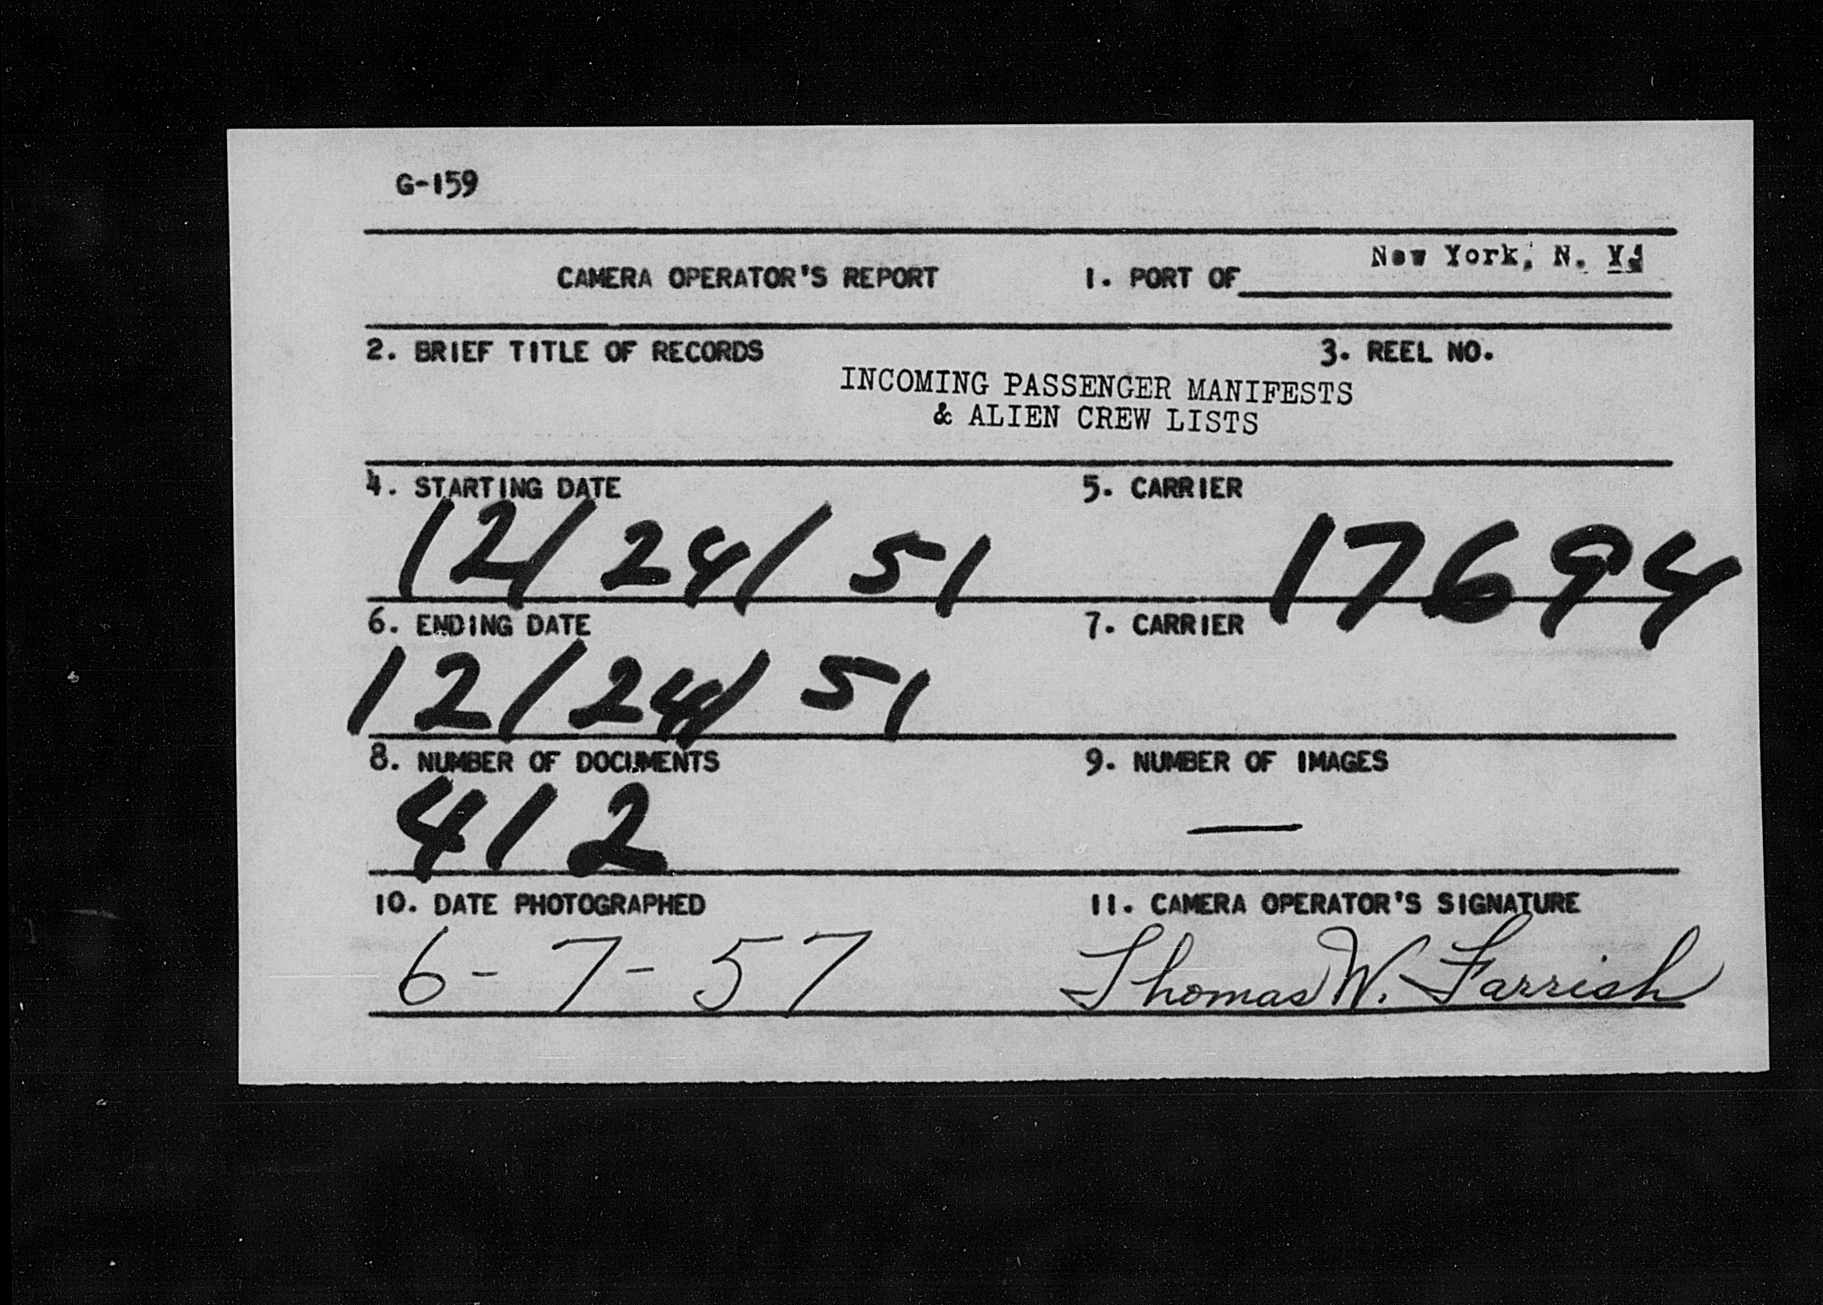 G-159
CAMERA OPERATOR'S REPORT
1. PORT OF New York, N. Y.
2. BRIEF TITLE OF RECORDS
3. REEL NO.
INCOMING PASSENGER MANIFESTS
& ALIEN CREW LISTS
4. STARTING DATE
5. CARRIER
12/24/51
17694
6. ENDING DATE
7. CARRIER
12/24/51
8. NUMBER OF DOCUMENTS
9. NUMBER OF IMAGES
412
—
10. DATE PHOTOGRAPHED
11. CAMERA OPERATOR'S SIGNATURE
6-7-57
Thomas W. Farrish